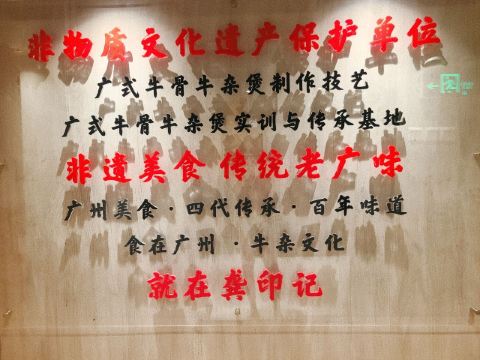 非物质文化遗产保护单位
广式牛骨牛杂煲制作技艺
广式牛骨牛杂煲实训与传承基地
非遗美食传统老广味
广州美食·四代传承·百年味道
食在广州·牛杂文化
就在龚印记